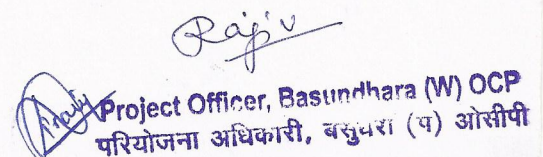 Rajiv
Project Officer, Basundhara (W) OCP
परियोजना अधिकारी, बसुंधरा (प) ओसीपी